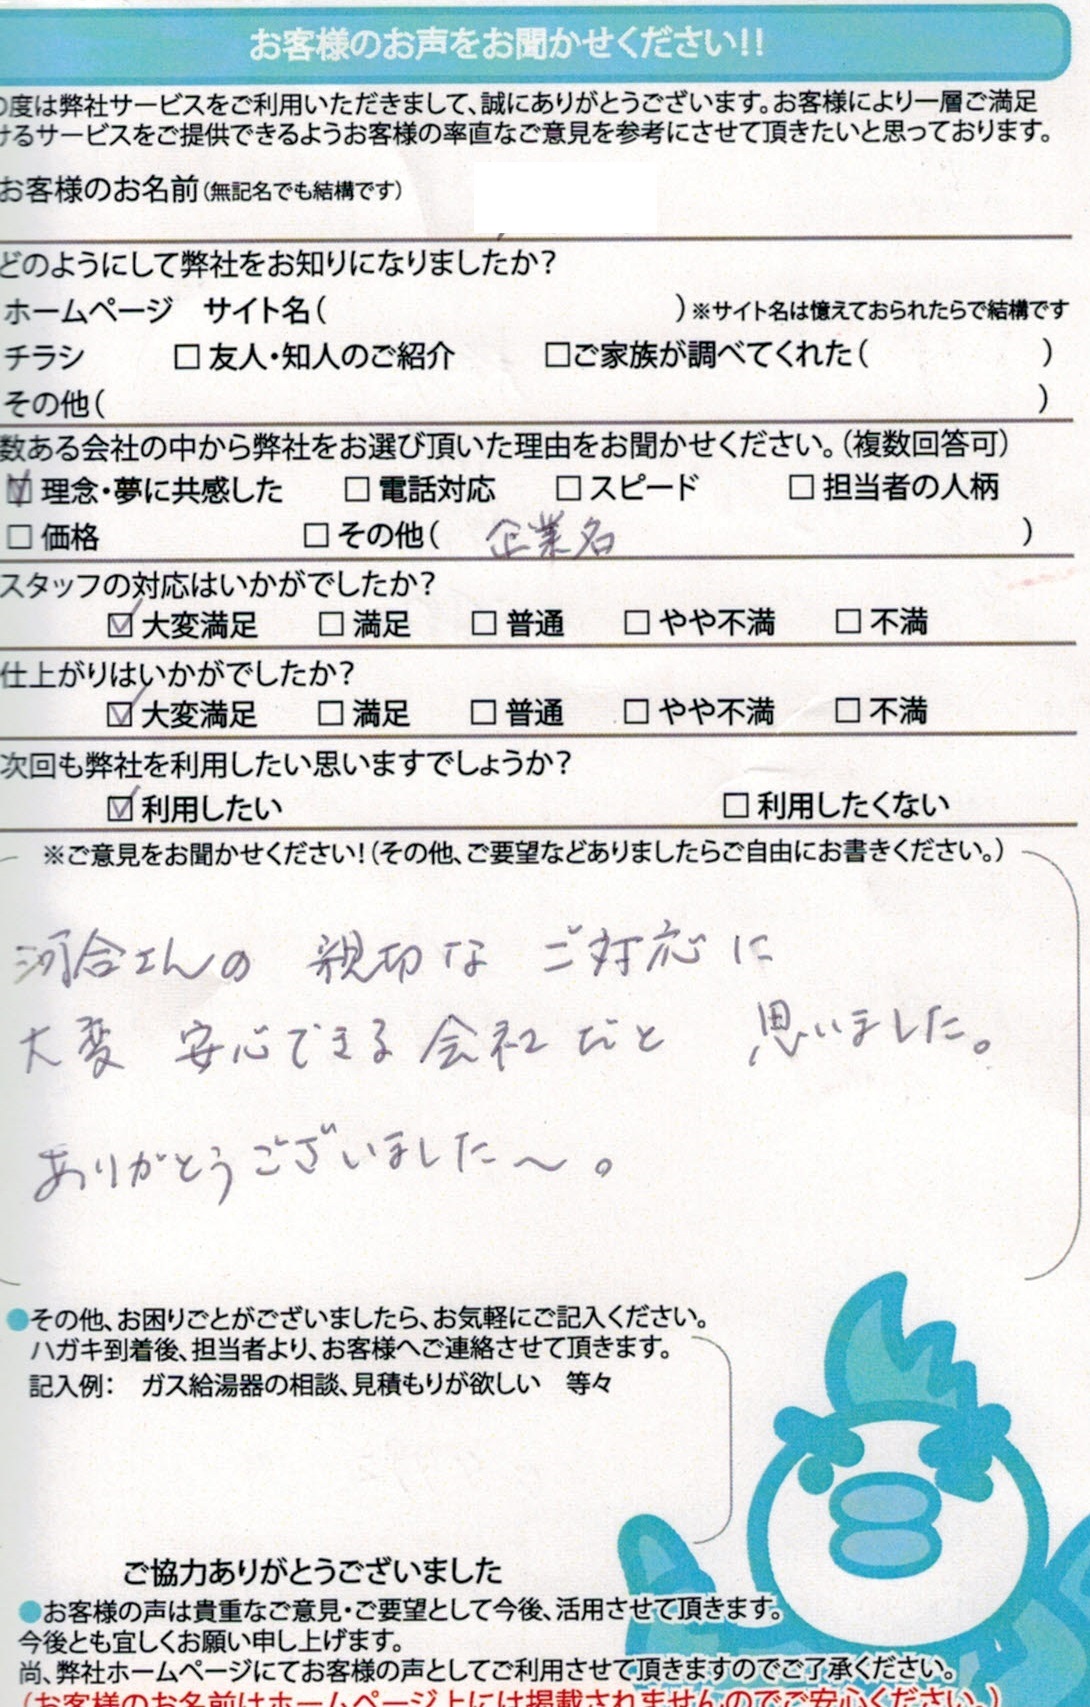 お客様のお声をお聞かせください!!
の度は弊社サービスをご利用いただきまして、誠にありがとうございます。お客様により一層ご満足
けるサービスをご提供できるようお客様の率直なご意見を参考にさせて頂きたいと思っております。
お客様のお名前(無記名でも結構です)
どのようにして弊社をお知りになりましたか?
ホームページ サイト名( )※サイト名は憶えておられたらで結構です
チラシ □友人・知人のご紹介 □ご家族が調べてくれた( )
その他( )
数ある会社の中から弊社をお選び頂いた理由をお聞かせください。(複数回答可)
☑理念・夢に共感した □電話対応 □スピード □担当者の人柄
□価格 □その他( 企業名 )
スタッフの対応はいかがでしたか?
☑大変満足 □満足 □普通 □やや不満 □不満
仕上がりはいかがでしたか?
☑大変満足 □満足 □普通 □やや不満 □不満
次回も弊社を利用したい思いますでしょうか?
☑利用したい □利用したくない
※ご意見をお聞かせください!(その他、ご要望などありましたらご自由にお書きください。)
河合さんの 親切な ご対応に
大変 安心できる会社だと 思いました。
ありがとうございました〜。
●その他、お困りごとがございましたら、お気軽にご記入ください。
ハガキ到着後、担当者より、お客様へご連絡させて頂きます。
記入例: ガス給湯器の相談、見積もりが欲しい 等々
ご協力ありがとうございました
●お客様の声は貴重なご意見・ご要望として今後、活用させて頂きます。
今後とも宜しくお願い申し上げます。
尚、弊社ホームページにてお客様の声としてご利用させて頂きますのでご了承ください。
(お客様のお名前はホームページ上には掲載されませんのでご安心ください。)